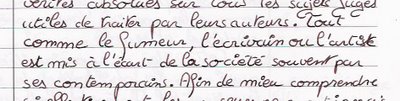 vérités absolues sur tous les sujets jugés
utiles de traiter par leurs auteurs. Tout
comme le fumeur, l'écrivain ou l'artiste
est mis à l'écart de la société souvent par
ses contemporains. Afin de mieu comprendre